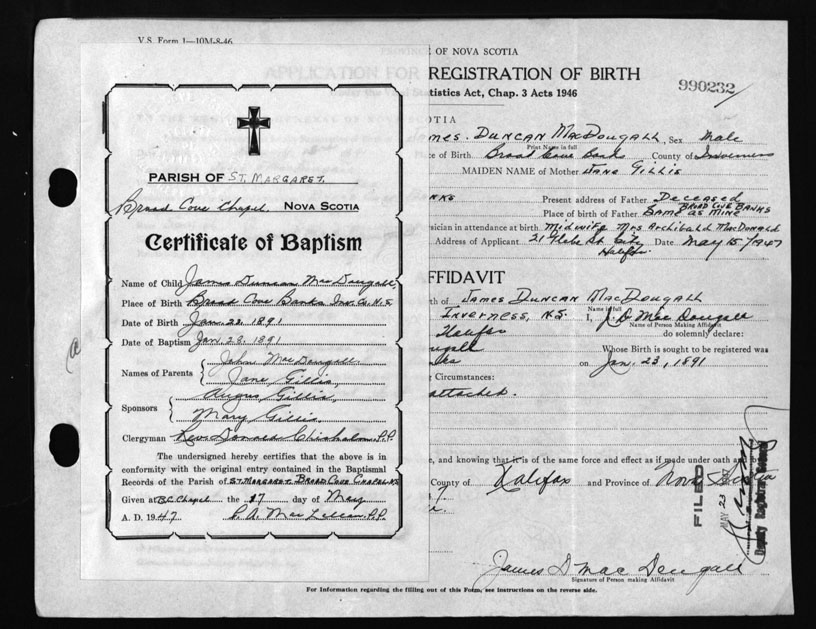 V.S. Form 1—10M-8-46
PARISH OF ST. MARGARET.
Broad Cove Chapel, NOVA SCOTIA
Certificate of Baptism
Name of Child James Duncan MacDougall,
Place of Birth Broad Cove Banks Inv. Co. N.S.
Date of Birth Jan. 22, 1891
Date of Baptism Jan. 23, 1891
Names of Parents John MacDougall
Jane Gillis,
Sponsors Angus Gillis,
Mary Gillis
Clergyman Rev. Donald Chisholm, P.P.
The undersigned hereby certifies that the above is in
conformity with the original entry contained in the Baptismal
Records of the Parish of ST. MARGARET BROAD COVE CHAPEL N.S
Given at B.C. Chapel the 17 day of May
A. D. 1947 P. A. MacLellan, P.P.
PROVINCE OF NOVA SCOTIA
APPLICATION FOR REGISTRATION OF BIRTH
tistics Act, Chap. 3 Acts 1946
990232
AMES. DUNCAN MACDOUGALL, Sex Male
Print Name in full
ce of Birth Broad Cove Banks County of Inverness
MAIDEN NAME of Mother JANE GILLIS
NKS Present address of Father DECEASED
Place of birth of Father SAME AS MINE BROAD COVE BANKS
sician in attendance at birth Midwife Mrs Archibald MacDonald
Address of Applicant 21 Glebe St. City Halifax. Date May 15/1947
FFIDAVIT
th of JAMES DUNCAN MACDOUGALL
Name in full
INVERNESS, N.S. I, J. D. MacDougall
Name of Person Making Affidavit
Halifax do solemnly declare:
ougall Whose Birth is sought to be registered was
nks on Jan. 23, 1891
g Circumstances:
attached.
e, and knowing that it is of the same force and effect as if made under oath and by
County of Halifax and Province of Nova Scotia
FILED
MAY 23 1947
Deputy Registrar General
James D MacDougall
Signature of Person making Affidavit
For Information regarding the filling out of this Form, see instructions on the reverse side.